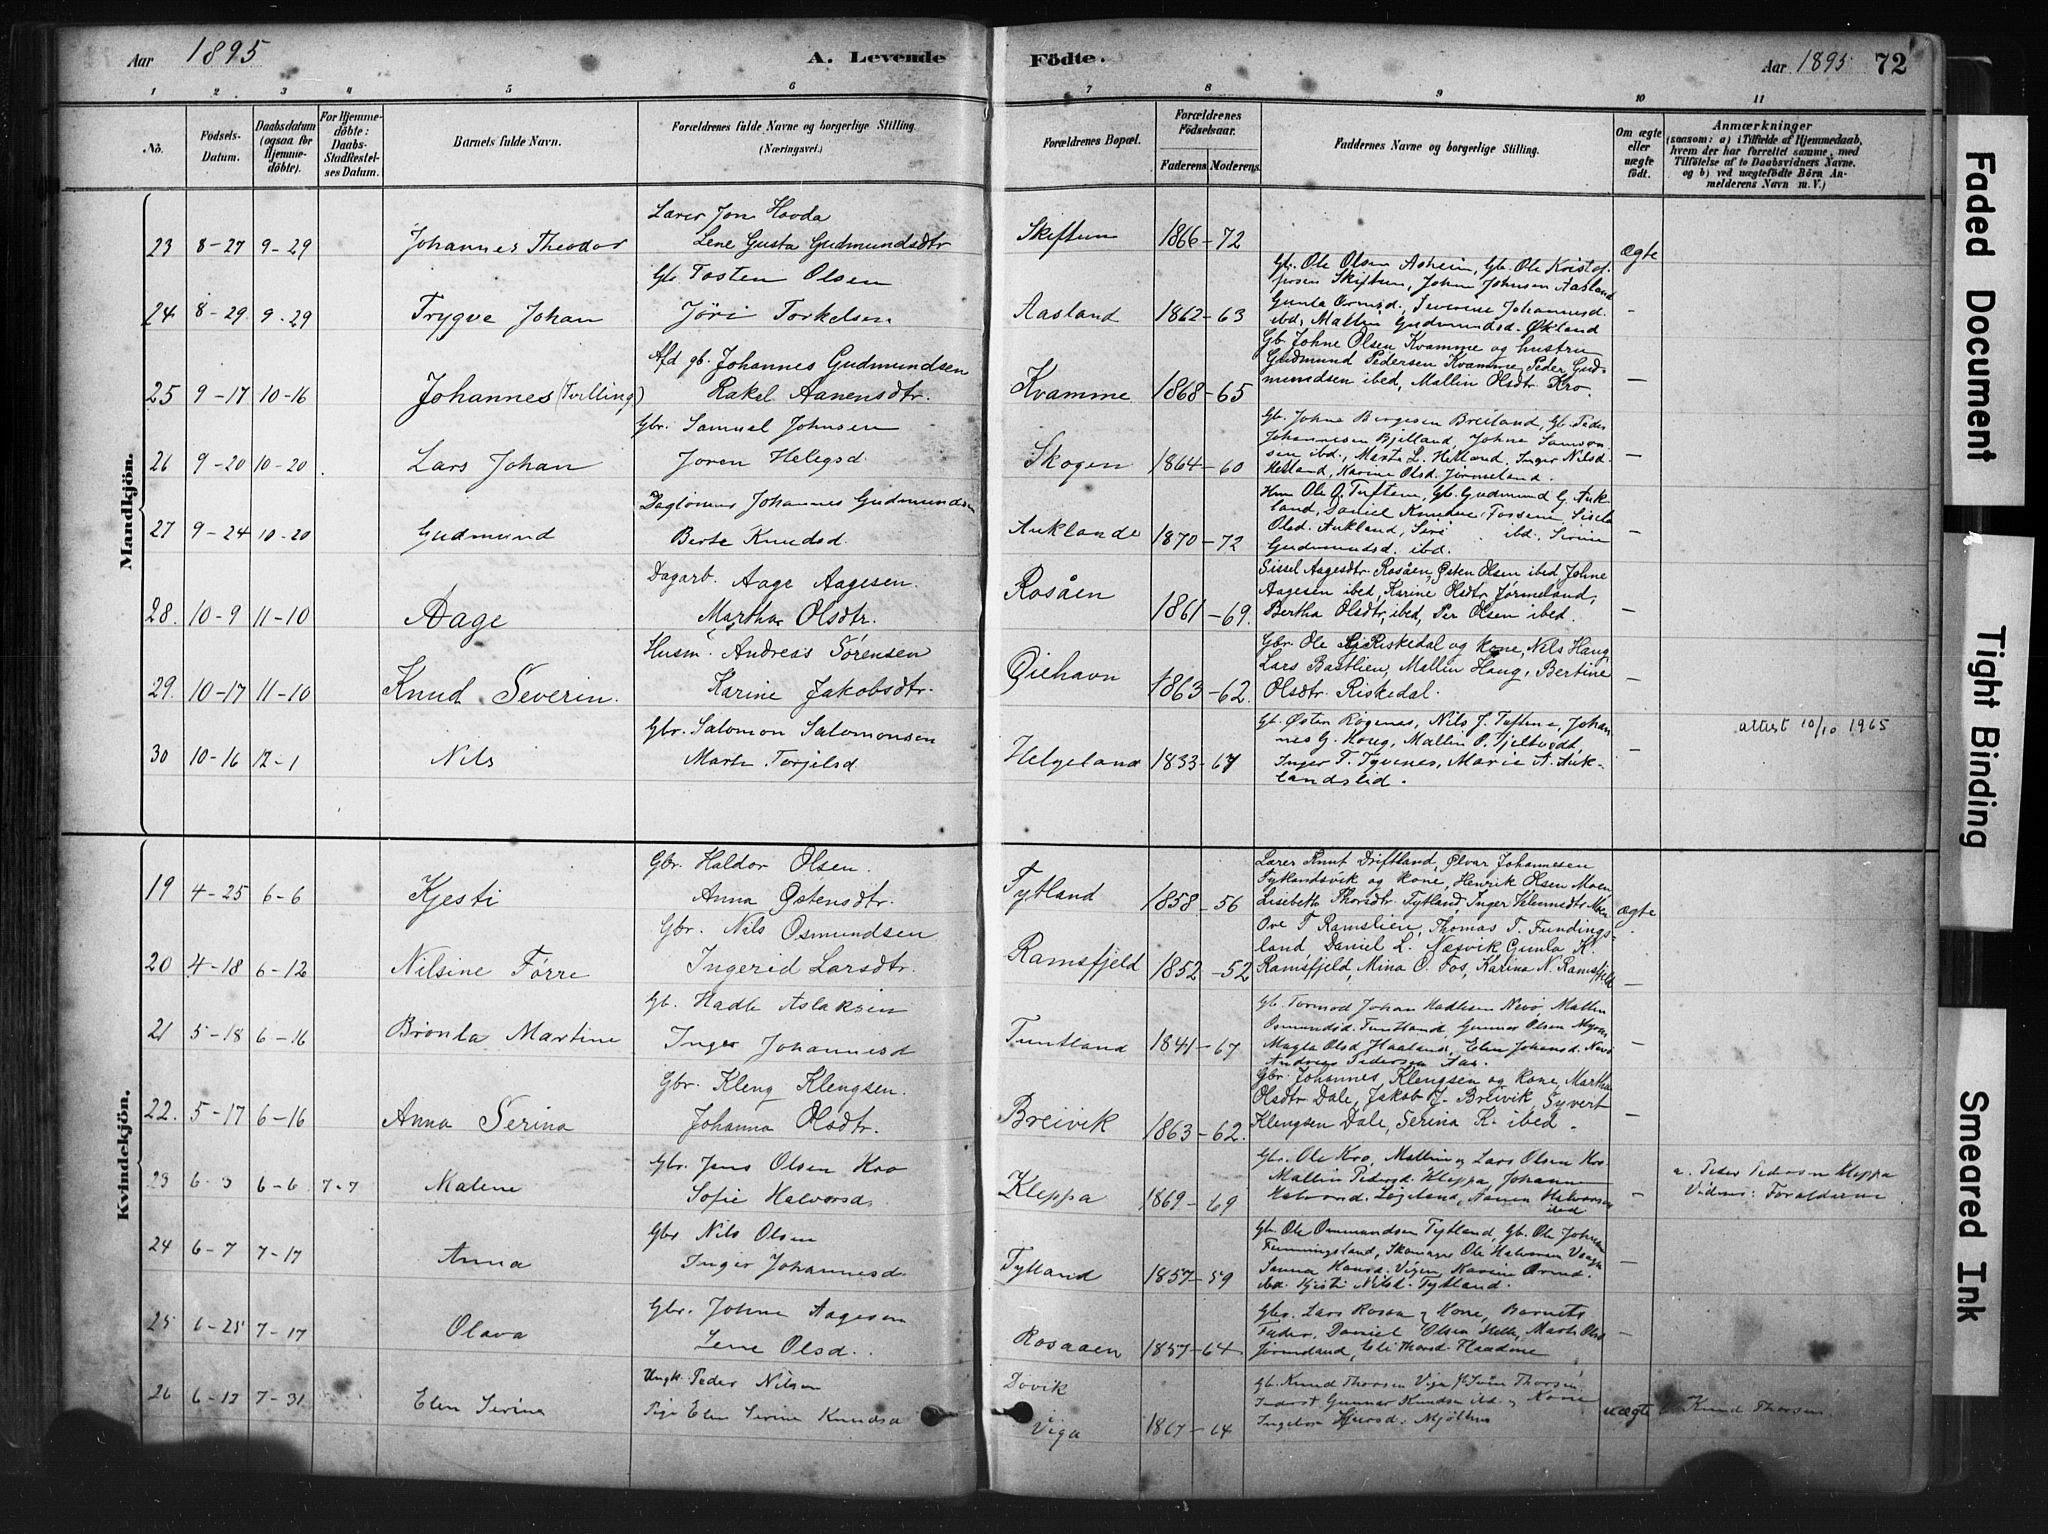 Aar 1895 A. Levende Födte. Aar 1895 72
1 2 3 4 5 6 7 8 9 10 11
No. Födsels-Datum. Daabsdatum (ogsaa for Hjemmedöbte). For Hjemmedöbte: Daabs-Stadfæstelses Datum. Barnets fulde Navn. Forældrenes fulde Navne og borgerlige Stilling. (Næringsvei.) Forældrenes Bopæl. Forældrenes Födselsaar. Faderens Moderens Faddernes Navne og borgerlige Stilling. Om ægte eller uægte födt. Anmærkninger
(saasom: a) i Tilfælde af Hjemmedaab, hvem der har forrettet samme, med Tilföielse af to Daabsvidners Navne. og b) ved uægtefödte Börn Anmelderens Navn m. V.)
Mandkjön.
Lærer Jon Hovda
23 8-27 9-29 Johannes Theodor Lene Gusta Gudmundsdtr Skiftun 1866-72 Ægte
Gb. Tosten Olsen
24 8-29 9-29 Trygve Johan Jöri Torkelsen Aasland 1862-63 Gb. Ole Olsen Asheim, Gb. Ole Kristof-
fersen Skiftun, John Johnsen Aasland
Gunla Ormsd., Severine Johannesd.
ibd, Mallin Gudmundsd. Økland -
Afd gb. Johannes Gudmundsen
25 9-17 10-16 Johannes (Tvilling) Rakel Aanensdtr. Kvamme 1868-65 Gb Johne Olsen Kvamme og hustru
Gudmund Pedersen Kvamme, Peder Gud-
mundsen ibed, Mallin Olsdtr Kro. -
Gbr. Samuel Johnsen
26 9-20 10-20 Lars Johan Joren Helegsd Skogen 1864-60 Gb. Johne Bergesen Breiland, Gb. Peder
Johannesen Bjelland, Johne Samson
sen ibd., Marta L. Hetland, Inger Nilsd.
Hetland, Karine Olsd. Jörmeland. -
Daglönner Johannes Gudmundsen
27 9-24 10-20 Gudmund Berte Knudsd. Auklande 1870-72 Hm Ole O. Tuften, Gb. Gudmund G. Auk-
land, Daniel Knudsen Fossene, Sisela
Olsd. Aukland, Siri ibd., Serine
Gudmundsd. ibd. -
Dagarb. Aage Aagesen.
28. 10-9 11-10 Aage Martha Olsdtr. Rosåen 1861-69. Sissel Aagesdtr Rosåen, Østen Olsen ibed Johne
Aagesen ibed, Karine Olsdtr Jørmeland,
Bertha Olsdtr, ibed, Per Olsen ibed. -
Husm. Andreas Sörensen
29. 10-17 11-10 Knud Severin. Karine Jakobsdtr. Qiehavn 1863-62. Gbr Ole Riskedal og kone, Nils Haug
Lars Bastlien, Mallin Haug, Bertine
Olsdtr. Riskedal. -
Gbr. Salomon Salomonsen
30 10-16 12-1 Nils Marta Torjilsd Helgeland 1833-67 Gb. Østen Rögenes, Nils J. Tuftene, Johan
nes G. Haug, Mallin O. Fjeltvedt,
Inger T. Tyvenes, Marie A. Auk-
landslid. - attest 10/10 1965
Kvindekjön.
Gbr. Haldor Olsen.
19 4-25 6-6 Kjesti Anna Østensdtr. Tytland 1858-56 Lærer Knut Driftland, Ølvar Johannesen
Tytlandsvik og kone, Henrik Olsen Moen
Lisebeth Thorsdtr. Tytland, Inger Moen Ægte
Gbr. Nils Osmundsen
20 4-18 6-12 Nilsine Törre Ingerid Larsdtr. Ramsfjeld 1852-52 Ove T Ramslien, Thomas T. Fundings-
land, Daniel L. Næsvik Gunla K.
Ramsfjeld, Mina O. Fos, Karina N. Ramsfjeld -
Gb. Hadle Aslaksen
21 5-18 6-16 Brönla Martine Inger Johannesd Tuntland 1841-67 Gb. Tormod Johan Hadlesen Nevö, Mallin
Osmundsd. Tuntland Gunnar Olsen Myran
Magla Olsd Haaland, Elin Johansd. Nevö
Andreas Pedersen -
Gbr. Kleng Klengsen.
22. 5-17 6-16 Anna Serina Johanna Olsdtr. Breivik 1863-62. Gbr. Johannes Klengsen og kone Martha
Olsdtr Dale, Jakob J. Breivik Syvert
Klengsen Dale, Serina K. ibed. -
Gbr. Jens Olsen Kro
23 6-3 6-6 7-7 Malene Sofie Halvorsd. Kleppa 1869-69 Gbr. Ole Kro, Mallin og Lars Olsen Kro
Mallin Pedersd. Kleppa, Johanne
Halvorsd. Lögeland, Aanen Halvorsen
ibed - a. Peder Pedersen Kleppa
Vidner: Forældrene
Gbr Nils Olsen
24 6-7 7-17 Anna Inger Johannesd. Tytland 1857-59 Gb. Ole Osmundsen Tytland, Gb. Ole Johnsen
Funningsland, Skomager Ole Halvorsen
Sanna Hansd. Vigen, Karine Ormsd.
ibd. Kjesti Nilsd. Tytland. -
Gbr. Johne Aagesen
25 6-25 7-17 Olava Lene Olsd. Rosaaen 1857-64 Gbr. Lars Rosaa og Kone, Barnets
Fader, Daniel Olsen Helle, Marta Olsd
Jörmeland, Eli Thorsd. Flaadene -
Ungk. Peder Nilsen Dovik
26 6-12 7-31 Elen Serine Pige Elen Serine Knudsd Viga 1867-64 Gb. Knud Thorsen Viga, Sven Thorsen
Gunnar Knudsen ibd. og Kone
Ingebor Mjölhus uægte b. Knud Thorsen.
Faded Document
Tight Binding
Smeared Ink